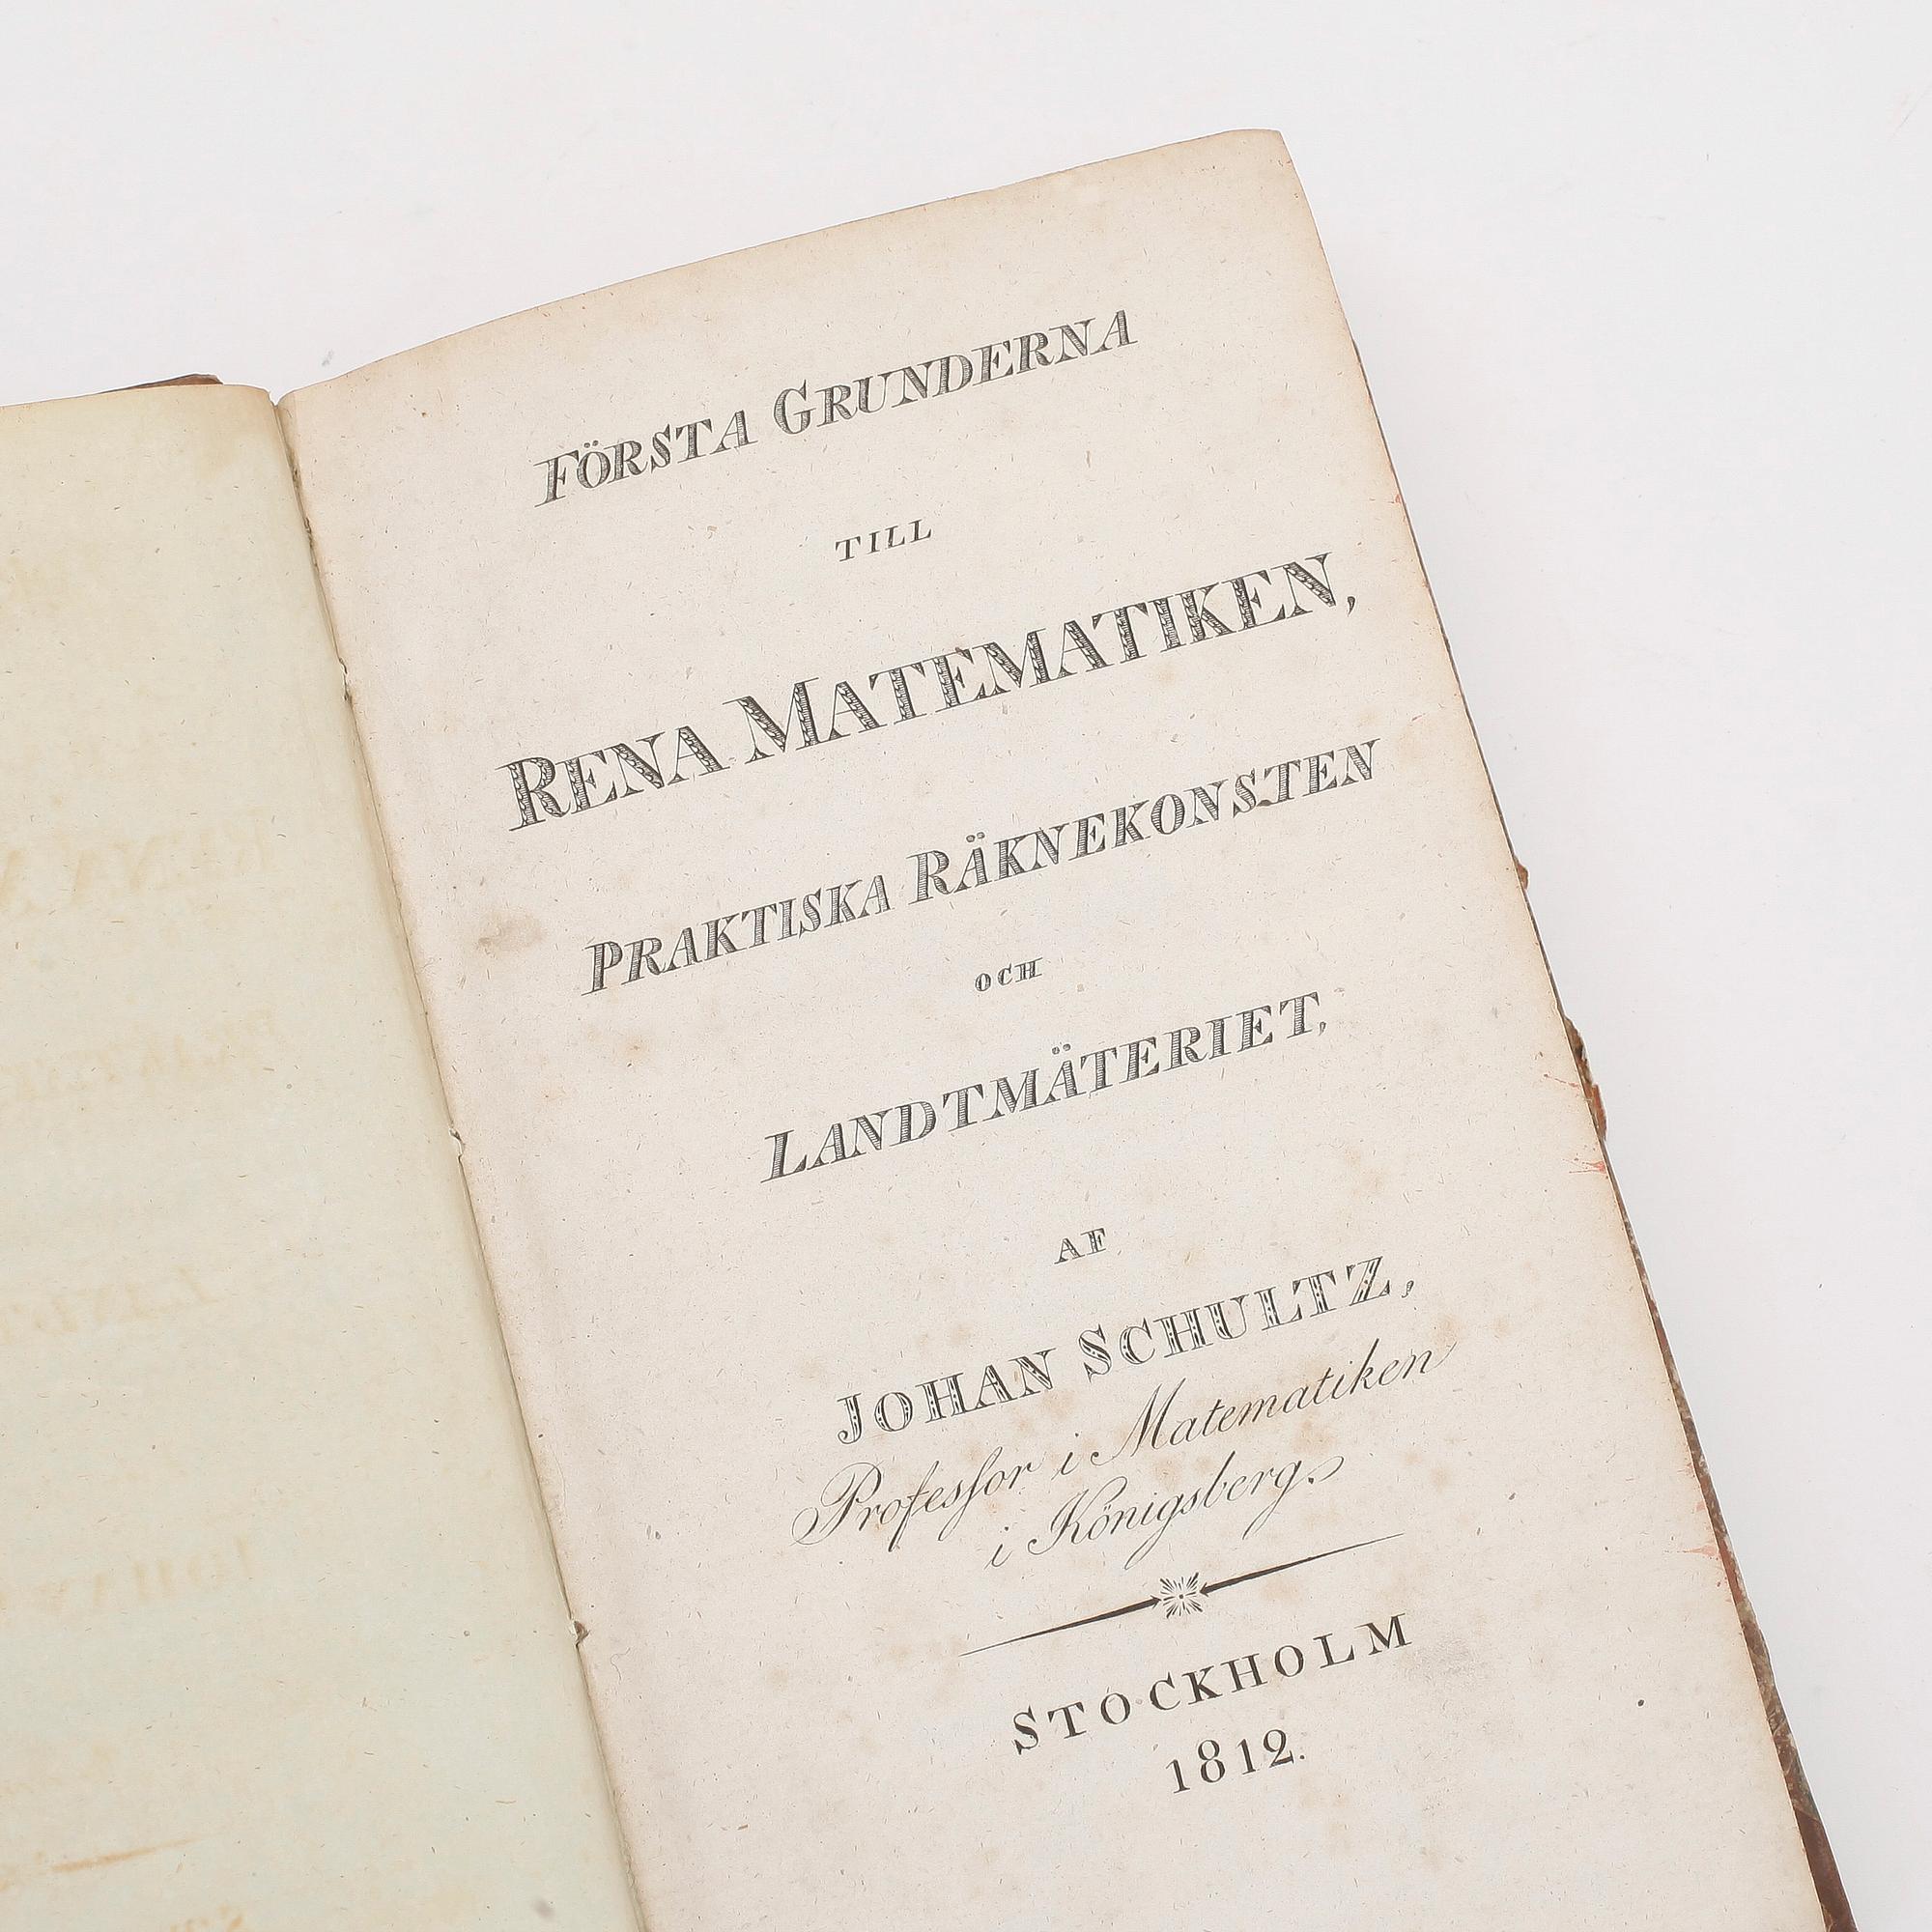 FÖRSTA GRUNDERNA
TILL
RENA MATEMATIKEN,
PRAKTISKA RÄKNEKONSTEN
OCH
LANDTMÄTERIET,
AF
JOHAN SCHULTZ,
Profeſsor i Matematiken
i Königsberg.
STOCKHOLM
1812.